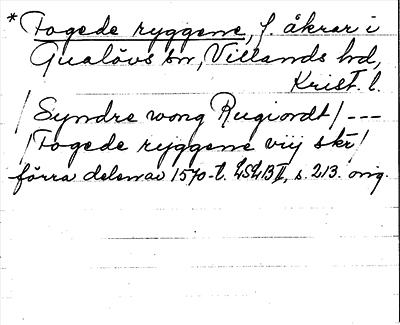 * Fogede ryggene, f. åkrar i
Gualövs sn, Villands hd,
Krist. l.
/Syndre wong Rugiordt/ ---
/Fogede ryggene viij skr/
förra delen av 1570-t. LSLB II, s. 213. orig.